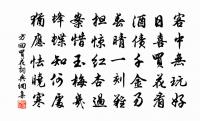 客中無玩好
日喜買花看
酒債千金易
一刻難
担驚紅杏過
惜玉梅殘
蜂蝶知何處
猶應怯曉寒
方回買花詞